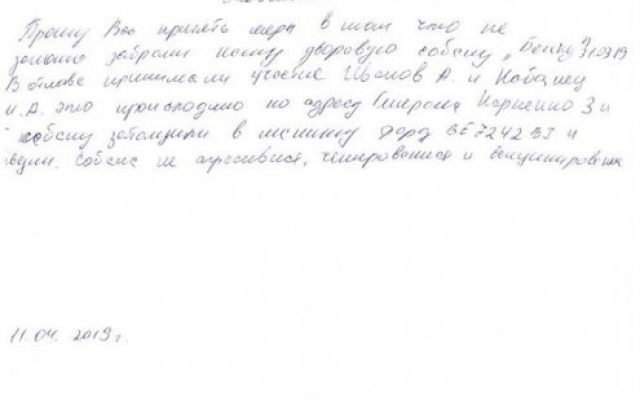 Прошу Вас принять меры в том что не
законно забрали нашу дворовую собаку "Бенжу" 31.03.19
В отлове принимали участие Иванов А. и Кабанец
И.А. это происходило по адресу Генерала Карпенко 3 и
собаку затащили в машину Форд ВЕ 7242 ВI и
Собака не агрессивная, чипированная и вакцинирована
11.04.2019 г.